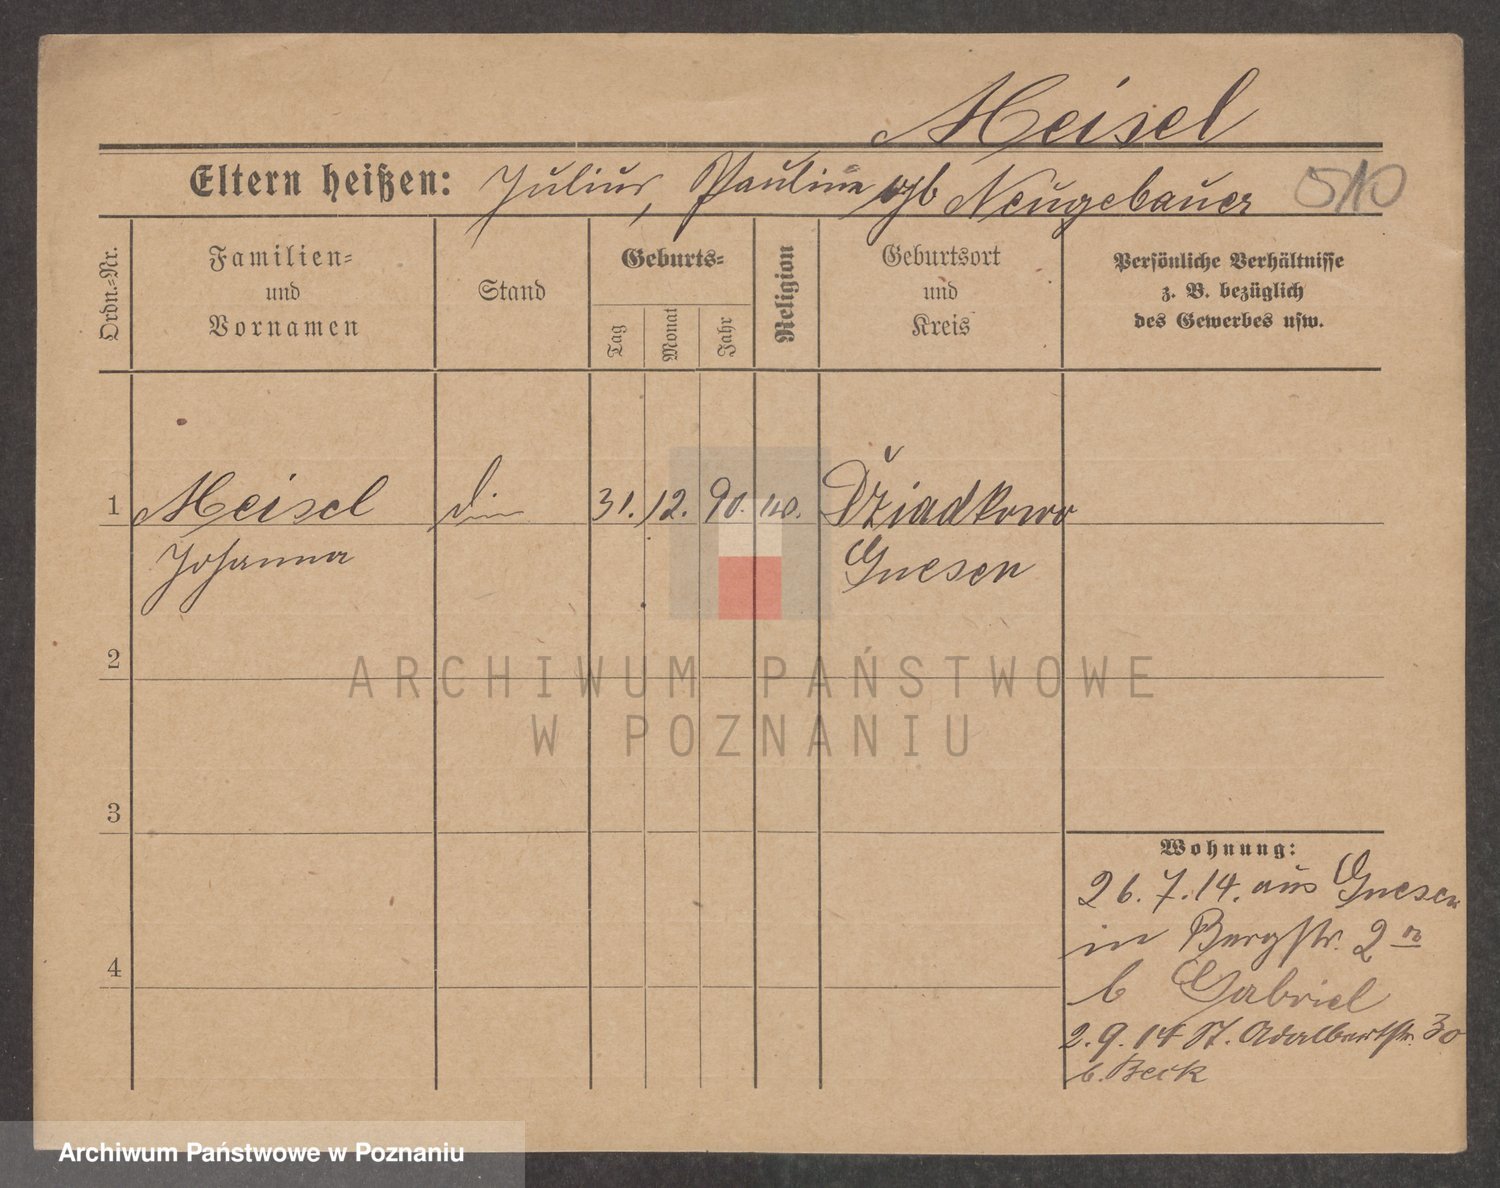 Meisel
Eltern heißen: Julius, Pauline gb Neugebauer
510
Ordn.-Nr.
Familien-
und
Vornamen
Stand
Geburts-
Tag
Monat
Jahr
Religion
Geburtsort
und
Kreis
Persönliche Verhältnisse
z. B. bezüglich
des Gewerbes usw.
1 Meisel 31. 12. 90. Dziadkowo
Johanna Gnesen
2
ARCHIWUM PAŃSTWOWE
W POZNANIU
3
Wohnung:
26.7.14. aus Gnesen
in Bergstr. 2
4
b Gabriel
2.9.14 St. Adalbertstr. 30
b. Beck
Archiwum Państwowe w Poznaniu